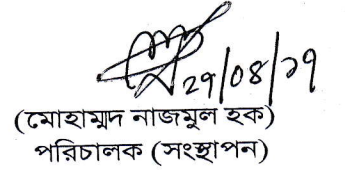 ২৭/০৪/১৭
(মোহাম্মদ নাজমুল হক)
পরিচালক (সংস্থাপন)